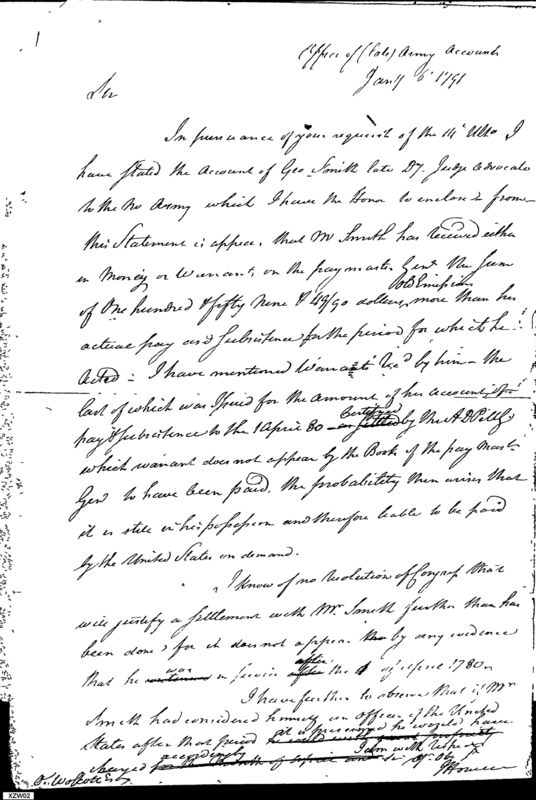 Office of (late) Army Accounts
Jany 6th 1791
Sir
In pursuance of your request of the 14th Ulto I
have stated the Account of Geo. Smith late Dy. Judge Advocate
to the No Army which I have the Honor to enclose & from
this Statement it appears that Mr Smith has received either
in Money or Warrants on the paymaster Genl the Sum
Old Emissions
of One hundred & fifty Nine & 49/90 dollars more than his
actual pay and Subsistence for the period for which he
Acted. I have mentioned Warrants by him – the
last of which was Issued for the amount of his account of
pay & Subsistence to the 1 April 80 certified by the
which warrant does not appear by the Books of the pay Mast
Genl to have been paid. The probability then arises that
it is still in his possession and therefore liable to be paid
by the United States on demand.
I know of no resolution of Congress that
will justify a settlement with Mr. Smith further than has
been done, for it does not appear by any evidence
that he was in service after the 1 of April 1780.
I have further to observe that if Mr
Smith had considered himself an Officer of the United
States after that period it is presumed he would have
charged accordingly
I am with Esteem
O. Wolcott Esq
J Howell
XZW02